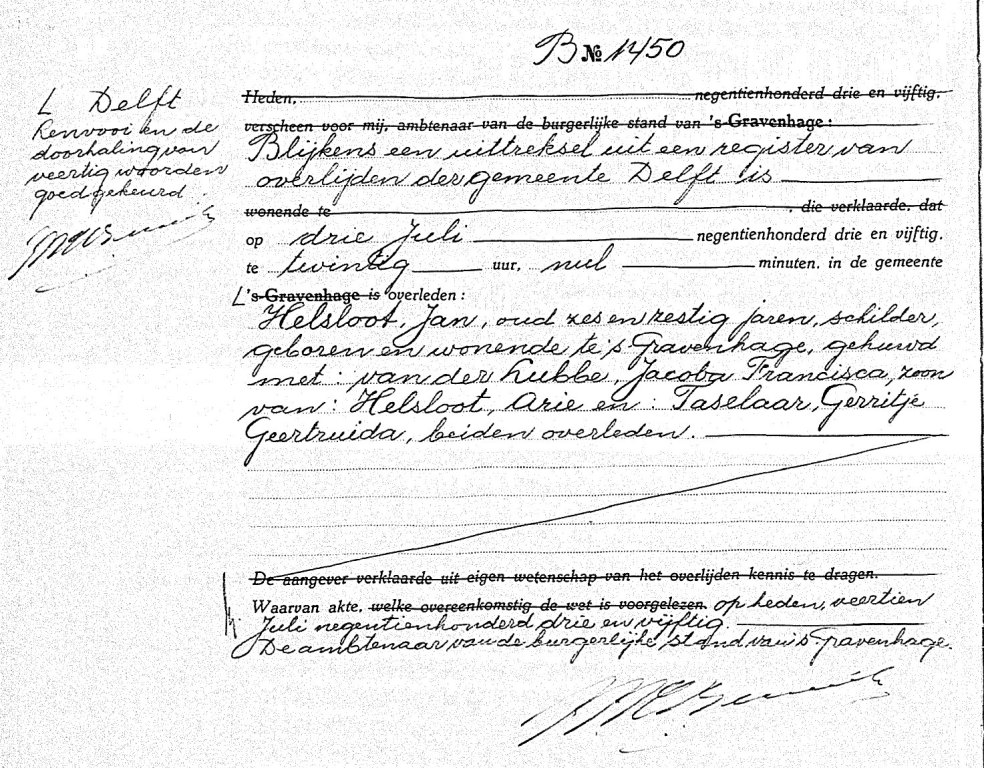 B № 1450
L Delft
Renvooi en de
doorhaling van
veertig woorden
goedgekeurd.
Heden, negentienhonderd drie en vijftig,
verscheen voor mij, ambtenaar van de burgerlijke stand van 's-Gravenhage:
Blijkens een uittreksel uit een register van
overlijden der gemeente Delft is
wonende te , die verklaarde, dat
op drie Juli negentienhonderd drie en vijftig,
te twintig uur, nul minuten, in de gemeente
L 's-Gravenhage is overleden:
Helsloot, Jan, oud zes en zestig jaren, schilder,
geboren en wonende te 's Gravenhage, gehuwd
met: van der Lubbe, Jacoba Francisca, zoon
van: Helsloot, Arie en: Taselaar, Gerritje
Geertruida, beiden overleden.
De aangever verklaarde uit eigen wetenschap van het overlijden kennis te dragen.
Waarvan akte, welke overeenkomstig de wet is voorgelezen. op heden, veertien
Juli negentienhonderd drie en vijftig.
De ambtenaar van de burgerlijke stand van 's Gravenhage.